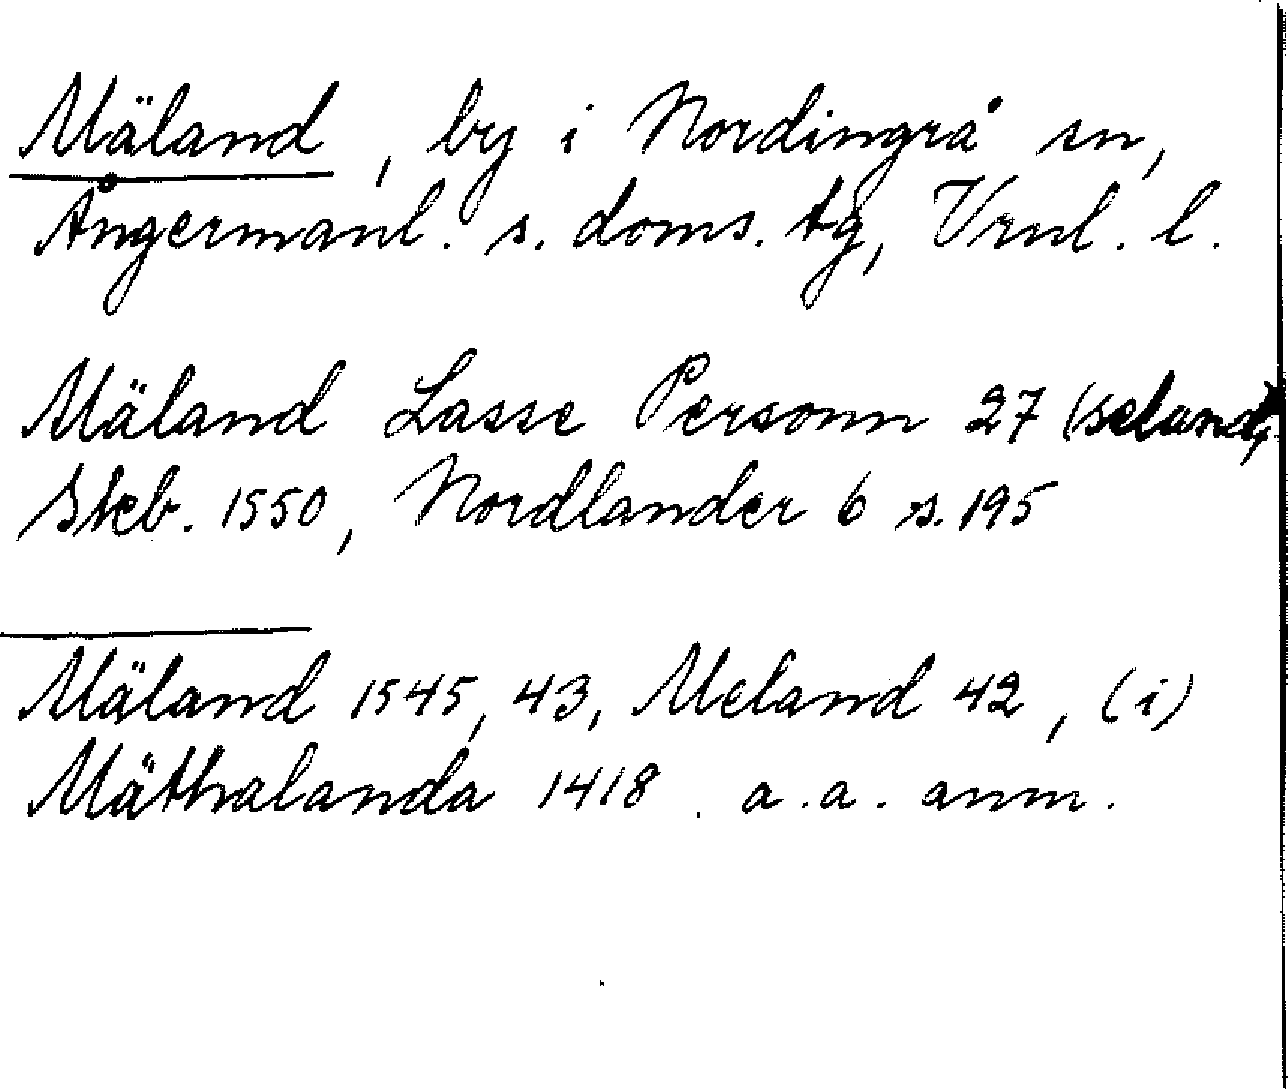 Mäland, by i Nordingrå sn,
Ångermanl. s. doms. tg, Vrnl. l.
Mäland Lasse Personn 27 (seland,
Skb. 1550, Nordlander 6 s. 195
Mäland 1545, 43, Meland 42, (i)
Mäthalanda 1418. a.a. anm.